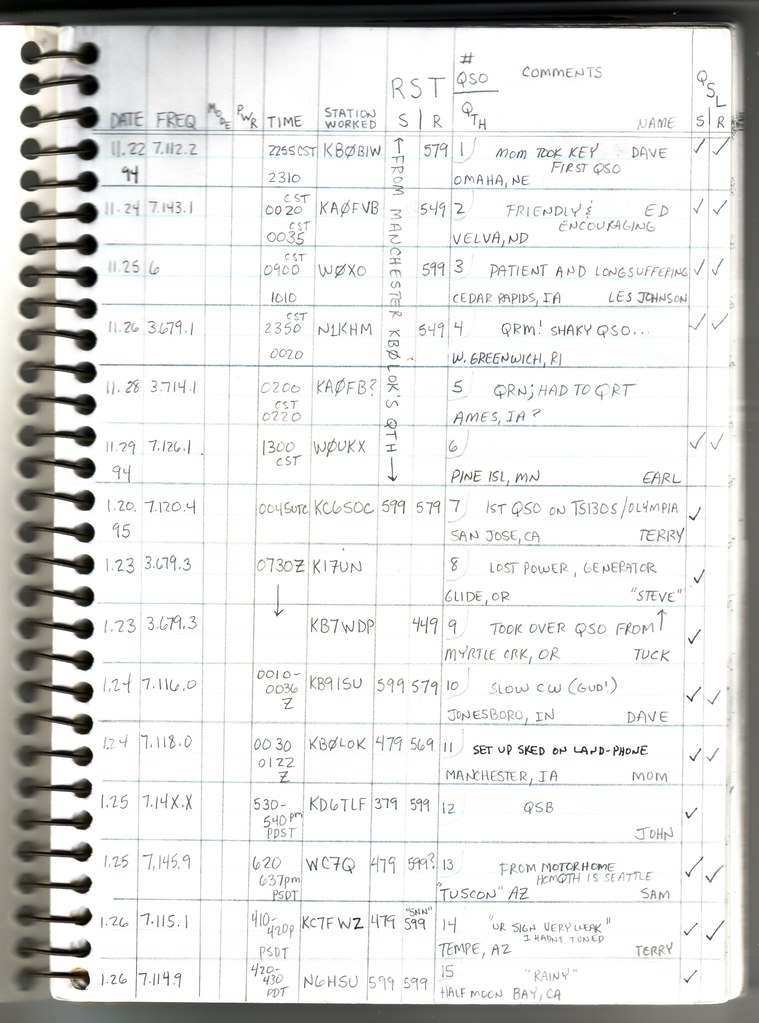 # QSO COMMENTS QSL
DATE FREQ MODE PWR TIME STATION WORKED RST S | R QTH NAME S | R
←FROM MANCHESTER KBØLOK'S QTH→
11.22 7.112.2 2255CST KBØBIW 579 1 MOM TOOK KEY DAVE ✓ ✓
94 2310 FIRST QSO
OMAHA, NE
11.24 7.143.1 CST 0020 KAØFVB 549 2 FRIENDLY & ED ✓ ✓
CST 0035 ENCOURAGING
VELVA, ND
11.25 6 CST 0900 WØXO 599 3 PATIENT AND LONGSUFFERING ✓ ✓
1010 CEDAR RAPIDS, IA LES JOHNSON
11.26 3.679.1 CST 2350 N1KHM 549 4 QRM! SHAKY QSO... ✓ ✓
0020 W. GREENWICH, RI
11.28 3.714.1 0200 KAØFB? 5 QRN; HAD TO QRT
CST 0220 AMES, IA?
11.29 7.126.1 1300 WØUKX 6 ✓ ✓
94 CST PINE ISL, MN EARL
1.20. 7.120.4 0045UTC KC6SOC 599 579 7 1ST QSO ON TS130S/OLYMPIA ✓
95 SAN JOSE, CA TERRY
1.23 3.679.3 0730Z K17UN 8 LOST POWER, GENERATOR ✓
↓ GLIDE, OR "STEVE"
1.23 3.679.3 KB7WDP 449 9 TOOK OVER QSO FROM↑ ✓
MYRTLE CRK, OR TUCK
1.24 7.116.0 0010- KB9ISU 599 579 10 SLOW CW (GUD!) ✓ ✓
0036 Z JONESBORO, IN DAVE
1.24 7.118.0 0030 KBØLOK 479 569 11 SET UP SKED ON LAND-PHONE ✓ ✓
0122 Z MANCHESTER, IA MOM
1.25 7.14X.X 530- KD6TLF 379 599 12 QSB ✓
540pm PDST JOHN
1.25 7,145.9 620 WC7Q 479 599? 13 FROM MOTORHOME ✓ ✓
637pm HOMQTH IS SEATTLE
PSDT "TUSCON" AZ SAM
1.26 7.115.1 410- KC7FWZ 479 "5NN" 599 14 "UR SIGN VERY WEAK" ✓ ✓
420p I HADNT TUNED
PSDT TEMPE, AZ TERRY
1.26 7.114.9 420- N6HSU 599 599 15 "RAINY" ✓
430 PDT HALF MOON BAY, CA